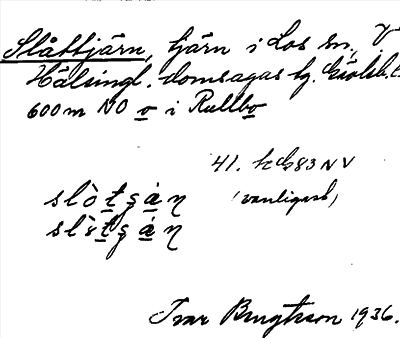 Slåttjärn, tjärn i Los sn, V
Hälsingl. domsagas tg. Gävleb.l.
600 m NO o i Rullbo
41. h d 83 N V
slòtṣán (vanligast)
slètṣán
Ivar Bengtsson 1936.